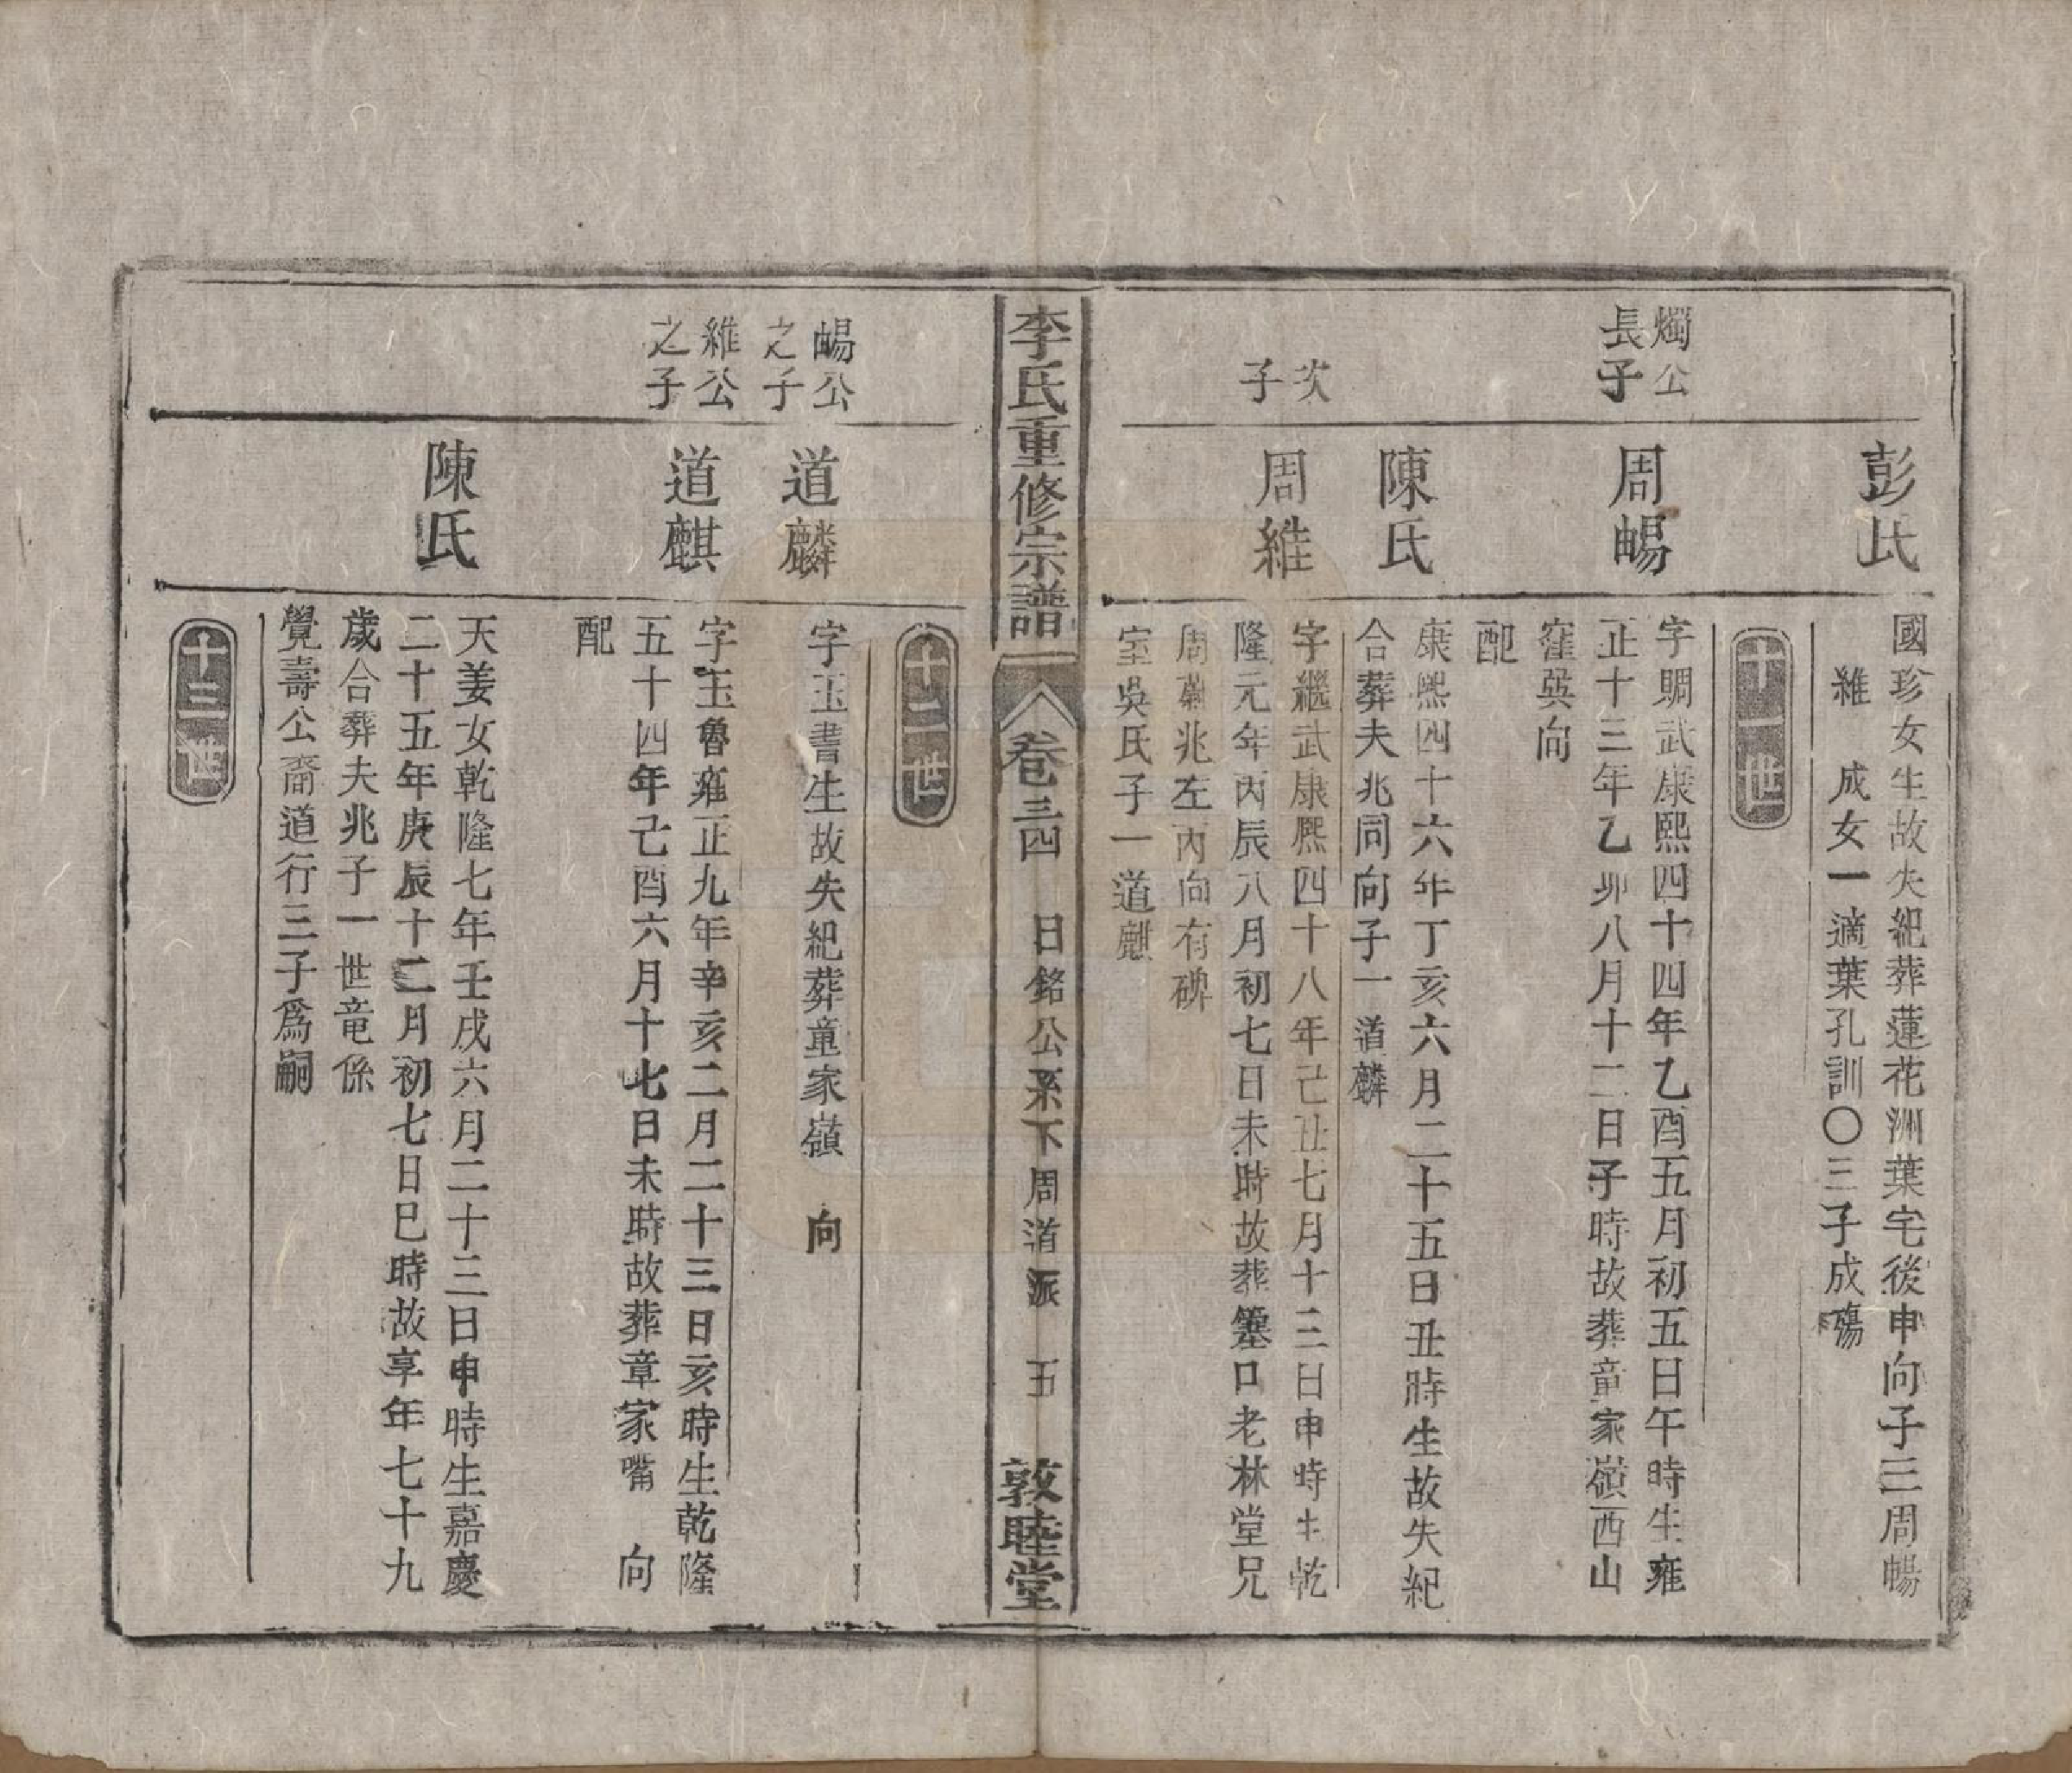 彭氏
國珍女生故失紀葬蓮花洲葉宅後申向子三周暢
維　成女一適葉孔訓〇三子成殤
十一世
燭公
長子
周暢
字賙武康熙四十四年乙酉五月初五日午時生雍
正十三年乙卯八月十二日子時故葬童家嶺西山
窪巽向
配
陳氏
康熙四十六年丁亥六月二十五日丑時生故失紀
合葬夫兆同向子一道麟
次
子
周維
字繼武康熙四十八年己丑七月十三日申時生乾
隆元年丙辰八月初七日未時故葬籉口老林堂兄
周蘭兆左丙向有碑
室吳氏子一道麒
李氏重修宗譜　卷三四　日銘公系下周道派　五　敦睦堂
十二世
暢公
之子
道麟
字玉書生故失紀葬童家嶺　向
維公
之子
道麒
字玉魯雍正九年辛亥二月二十三日亥時生乾隆
五十四年己酉六月十七日未時故葬章家嘴　向
配
陳氏
天姜女乾隆七年壬戌六月二十三日申時生嘉慶
二十五年庚辰十二月初七日巳時故享年七十九
歲合葬夫兆子一世竜係
覺壽公裔道行三子爲嗣
十三世